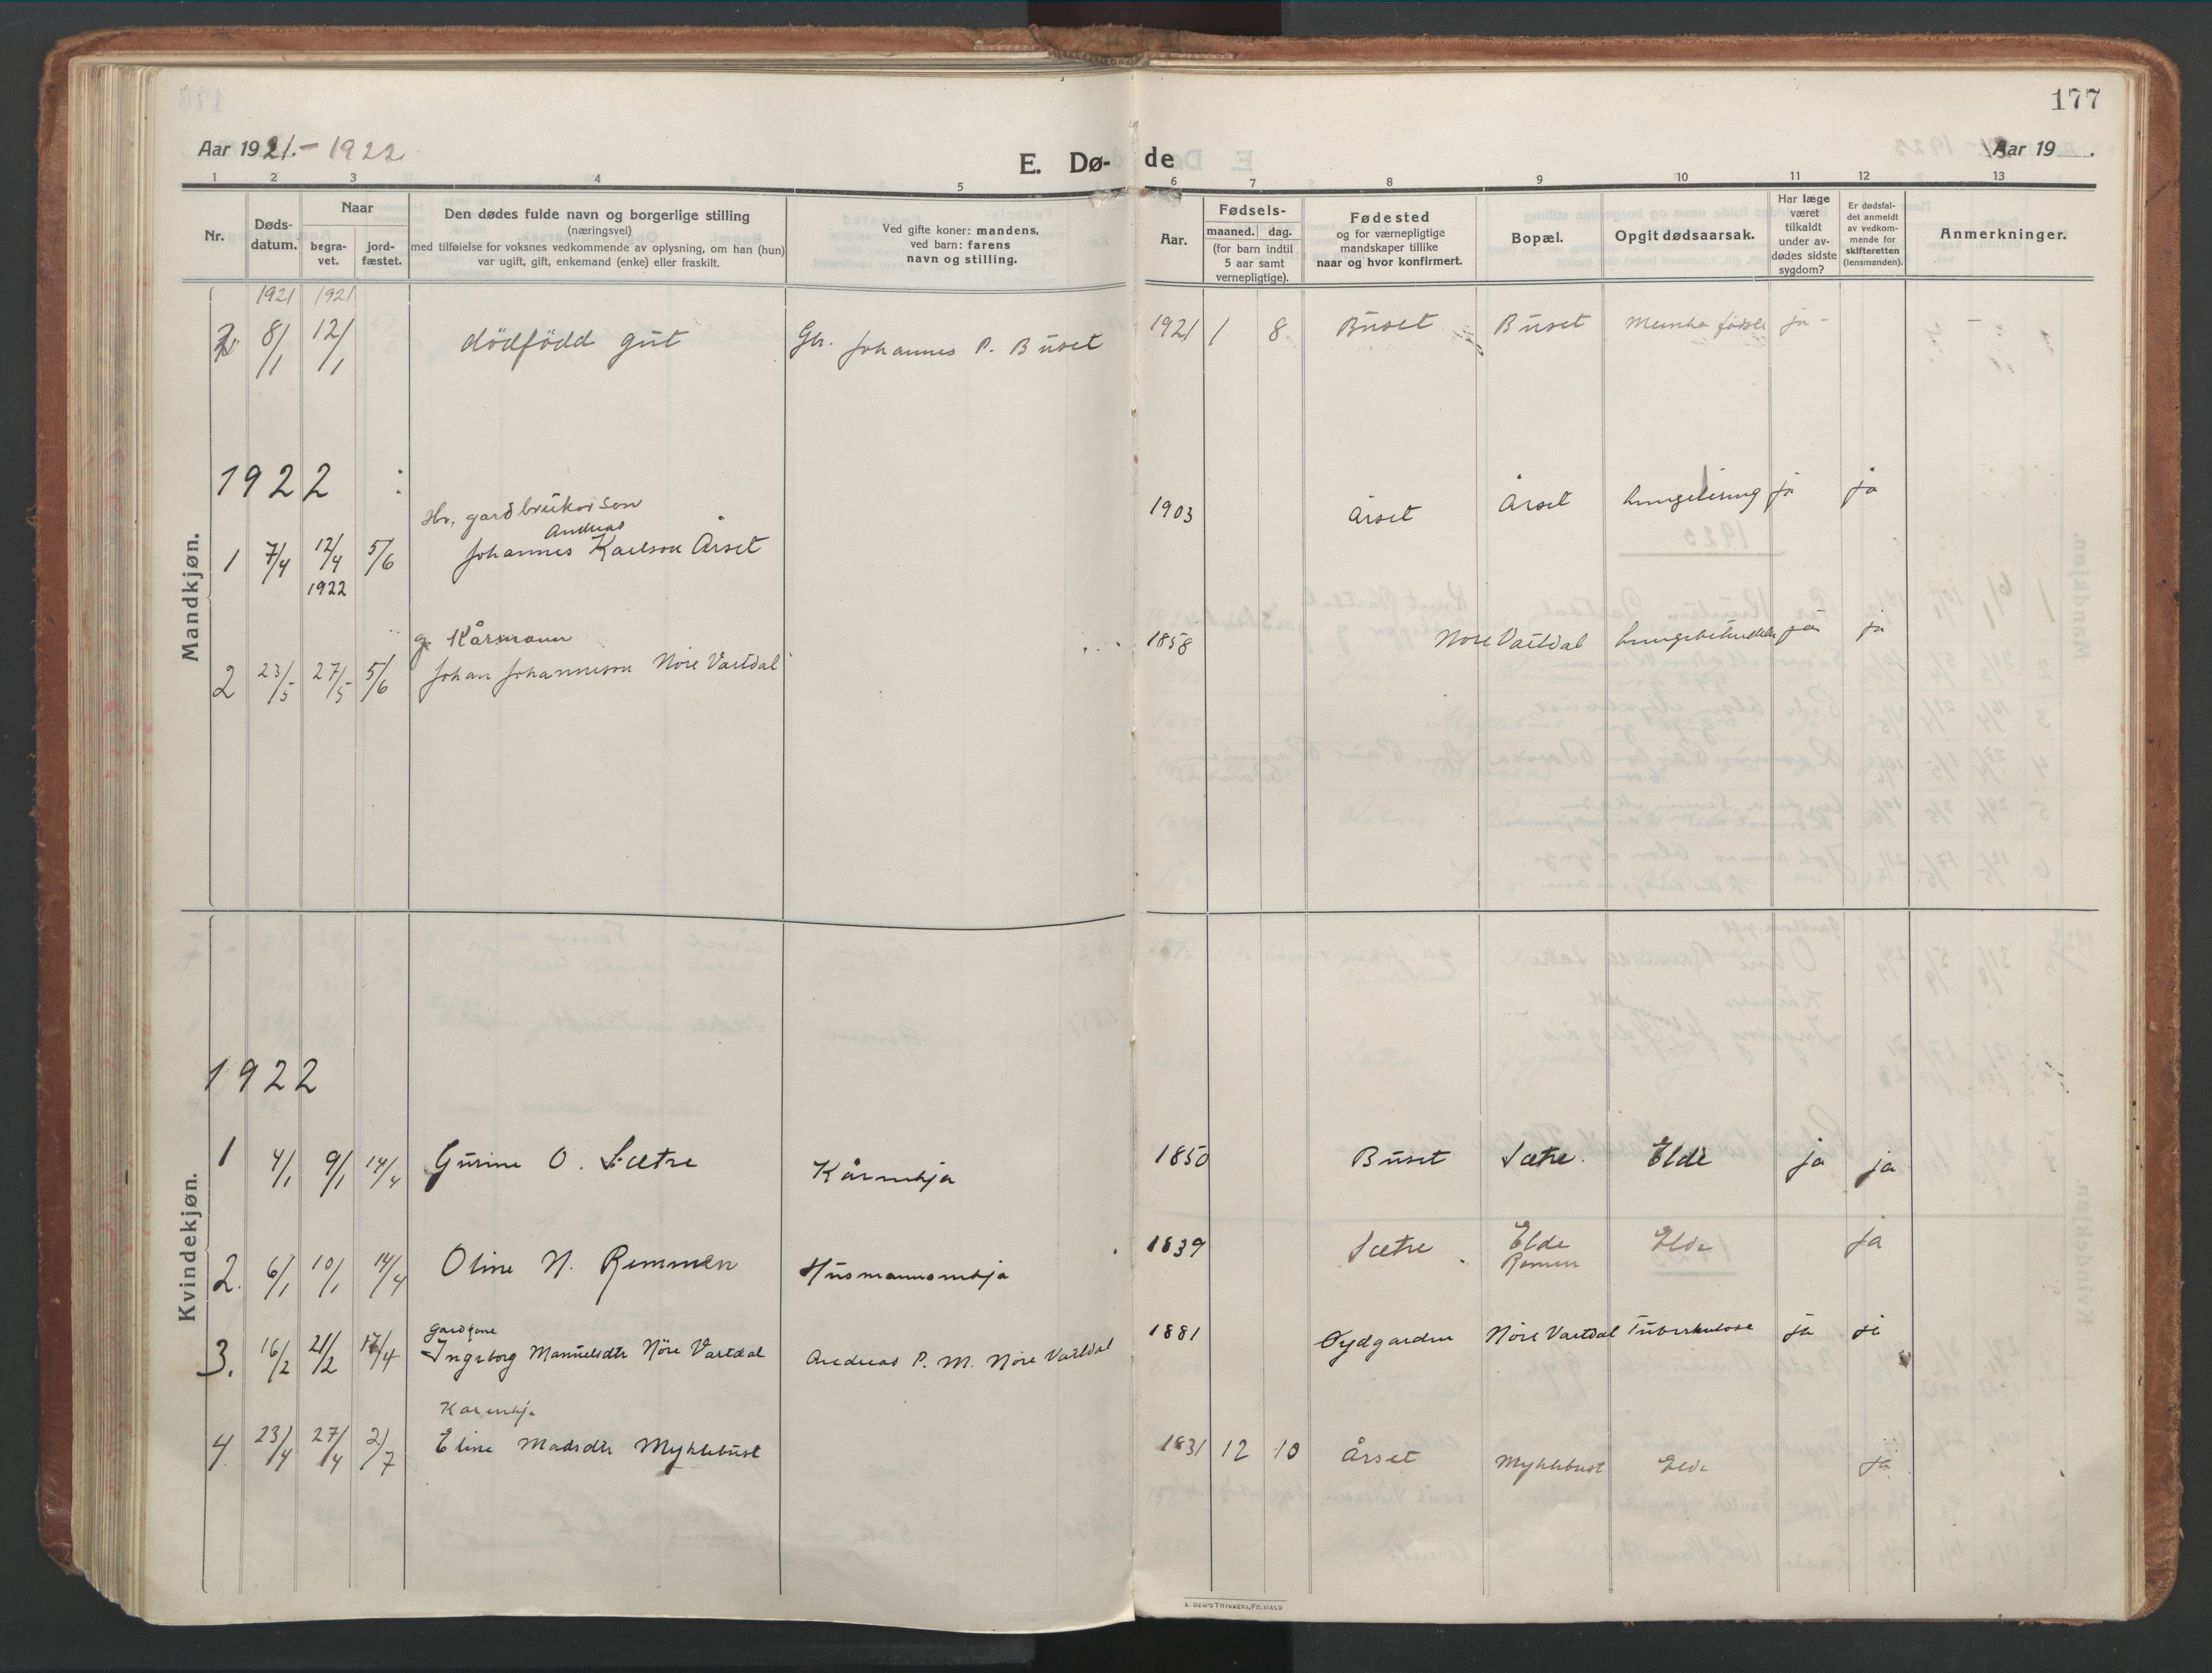 177
Aar 1921.-1922
E. Dø-
de
Aar 19 .
1 2 3 4 5 6 7 8 9 10 11 12 13
Nr.
Døds-
datum.
Naar
begra-
vet.
jord-
fæstet.
Den dødes fulde navn og borgerlige stilling
(næringsvei)
med tilføielse for voksnes vedkommende av oplysning, om han (hun)
var ugift, gift, enkemand (enke) eller fraskilt.
Ved gifte koner: mandens,
ved barn: farens
navn og stilling.
Aar.
Fødsels-
maaned. dag.
(for barn indtil
5 aar samt
vernepligtige).
Fødested
og for værnepligtige
mandskaper tillike
naar og hvor konfirmert.
Bopæl.
Opgit dødsaarsak.
Har læge
været
tilkaldt
under av-
dødes sidste
sygdom?
Er dødsfal-
det anmeldt
av vedkom-
mende for
skifteretten
(lensmanden).
Anmerkninger.
Mandkjøn.
1921 1921
8/1 12/1 dödfödd gut Gbr. Johannes P. Buset 1921 1 8 Buset Buset fødsle ja -
1922 :
gardbrukarson
Andreas
1 7/4 12/4 5/6 Johannes Karlson Årset 1903 Årset Årset ja ja
1922
g. Kårmann
2 23/5 27/5 5/6 Johan Johannesson Nore Vartdal 1858 Nore Vartdal ja ja
Kvindekjøn.
1922
1 4/1 9/1 14/4 Gurine O. Sætre Kårenkja 1850 Buset Sætre. Elde ja ja
2. 6/1 10/1 14/4 Oline N. Remmen Husmannsenkja 1839 Sætre Elde Elde ja
Remen
Gardkone
3. 16/2 21/2 17/4 Ingeborg Manuelsdtr Nöre Vartdal Andreas P. M. Nöre Vartdal 1881 Öydgarden Nöre Vartdal Tuberkulose ja ja
Kårenkje
4. 23/4 27/4 2/7 Eline Madsdtr Myklebust 1831 12 10 Årset Myklebust Elde ja